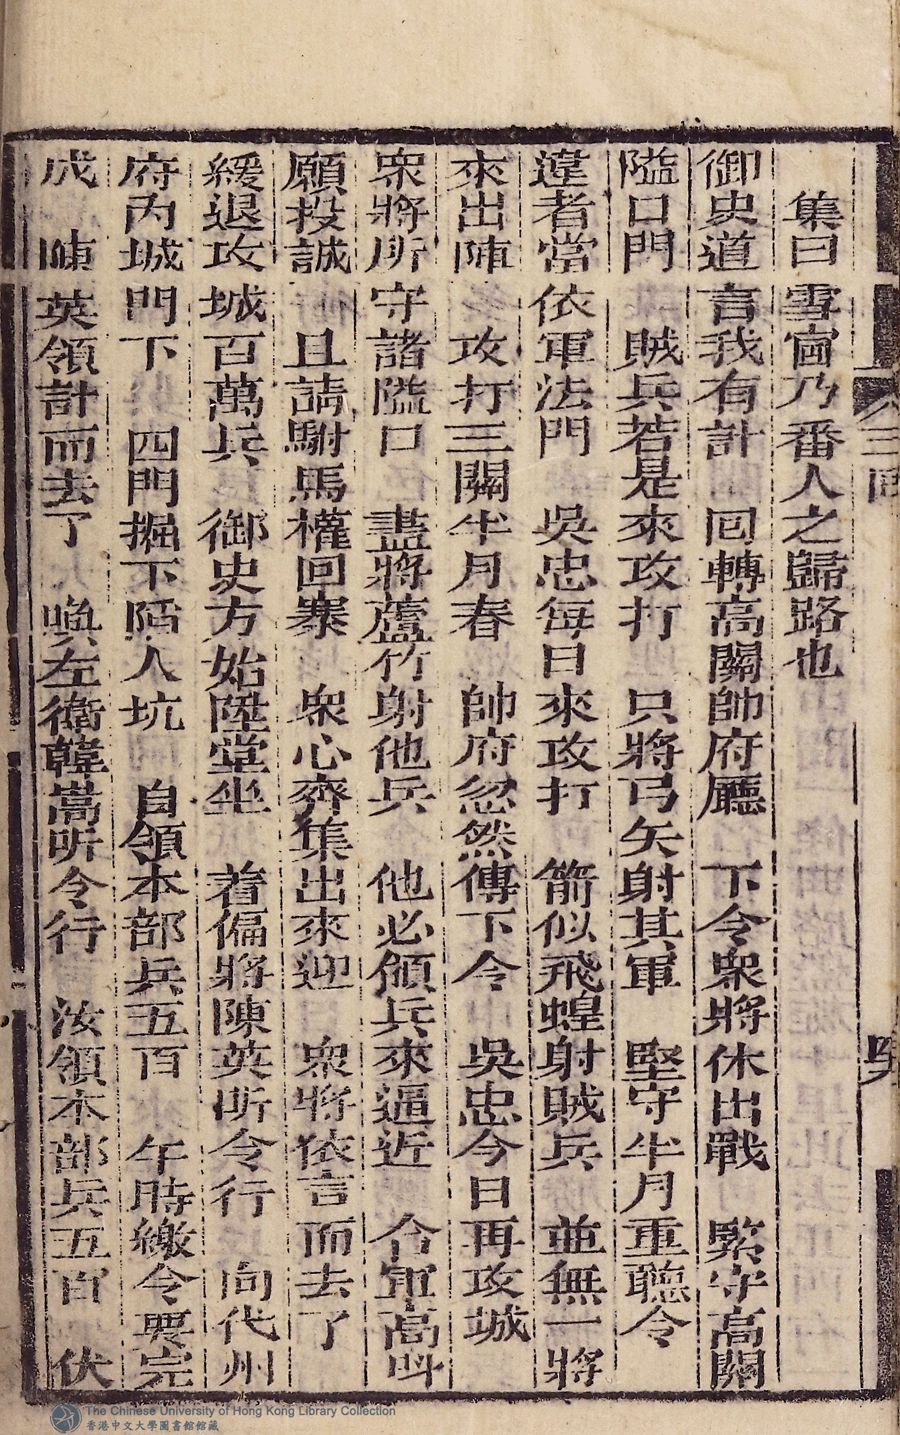 集曰雪窗乃番人之歸路也
御史道言我有計 回轉高關帥府廳 下令衆將休出戰 緊守高關
隘口門 賊兵若是來攻打 只將弓矢射其軍 堅守半月重聽令
違者當依軍法門 吳忠每日來攻打 箭似飛蝗射賊兵 並無一將
來出陣 攻打三關半月春 帥府忽然傳下令 吳忠今日再攻城
衆將所守諸隘口 盡將蘆竹射他兵 他必領兵來逼近 合軍高呌
願投誠 且請駙馬權回寨 衆心齊集出來迎 衆將依言而去了
緩退攻城百萬兵 御史方始陞堂坐 着偏將陳英听令行 向代州
府內城門下 四門掘下陷人坑 自領本部兵五百 午時繳令要完
成 陳英領計而去了 喚左衛韓嵩听令行 汝領本部兵五百 伏
三囘
The Chinese University of Hong Kong Library Collection
香港中文大學圖書館館藏